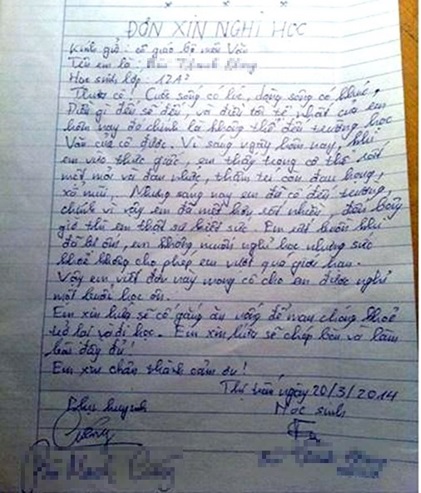 ĐƠN XIN NGHỈ HỌC
Kính gửi : cô giáo bộ môn Văn
Tên em là :
Học sinh lớp : 12A2
Thưa cô ! Cuộc sống có lúc, dòng sông có khúc,
Điều gì đến sẽ đến và điều tồi tệ nhất của em
hôm nay đó chính là không thể đến trường học
Văn của cô được. Vì sáng ngày hôm nay, khi
em vừa thức giấc, em thấy trong cơ thể rất
mệt mỏi và đau nhức, thậm trí còn đau họng,
xổ mũi. Nhưng sáng nay em đã cố đến trường,
chính vì vậy em đã mệt hơn rất nhiều, đến bây
giờ thì em thật sự hết sức. Em rất buồn khi
đã bị ốm, em không muốn nghỉ học nhưng sức
khoẻ không cho phép em vượt quá giới hạn.
Vậy em viết đơn này mong cô cho em được nghỉ
một buổi học ôn.
Em xin hứa sẽ cố gắng ăn uống để mau chóng khoẻ
trở lại và đi học. Em xin hứa sẽ chép bài và làm
bài đầy đủ !
Em xin chân thành cảm ơn !
ngày 20/3/2014
Phụ huynh Học sinh